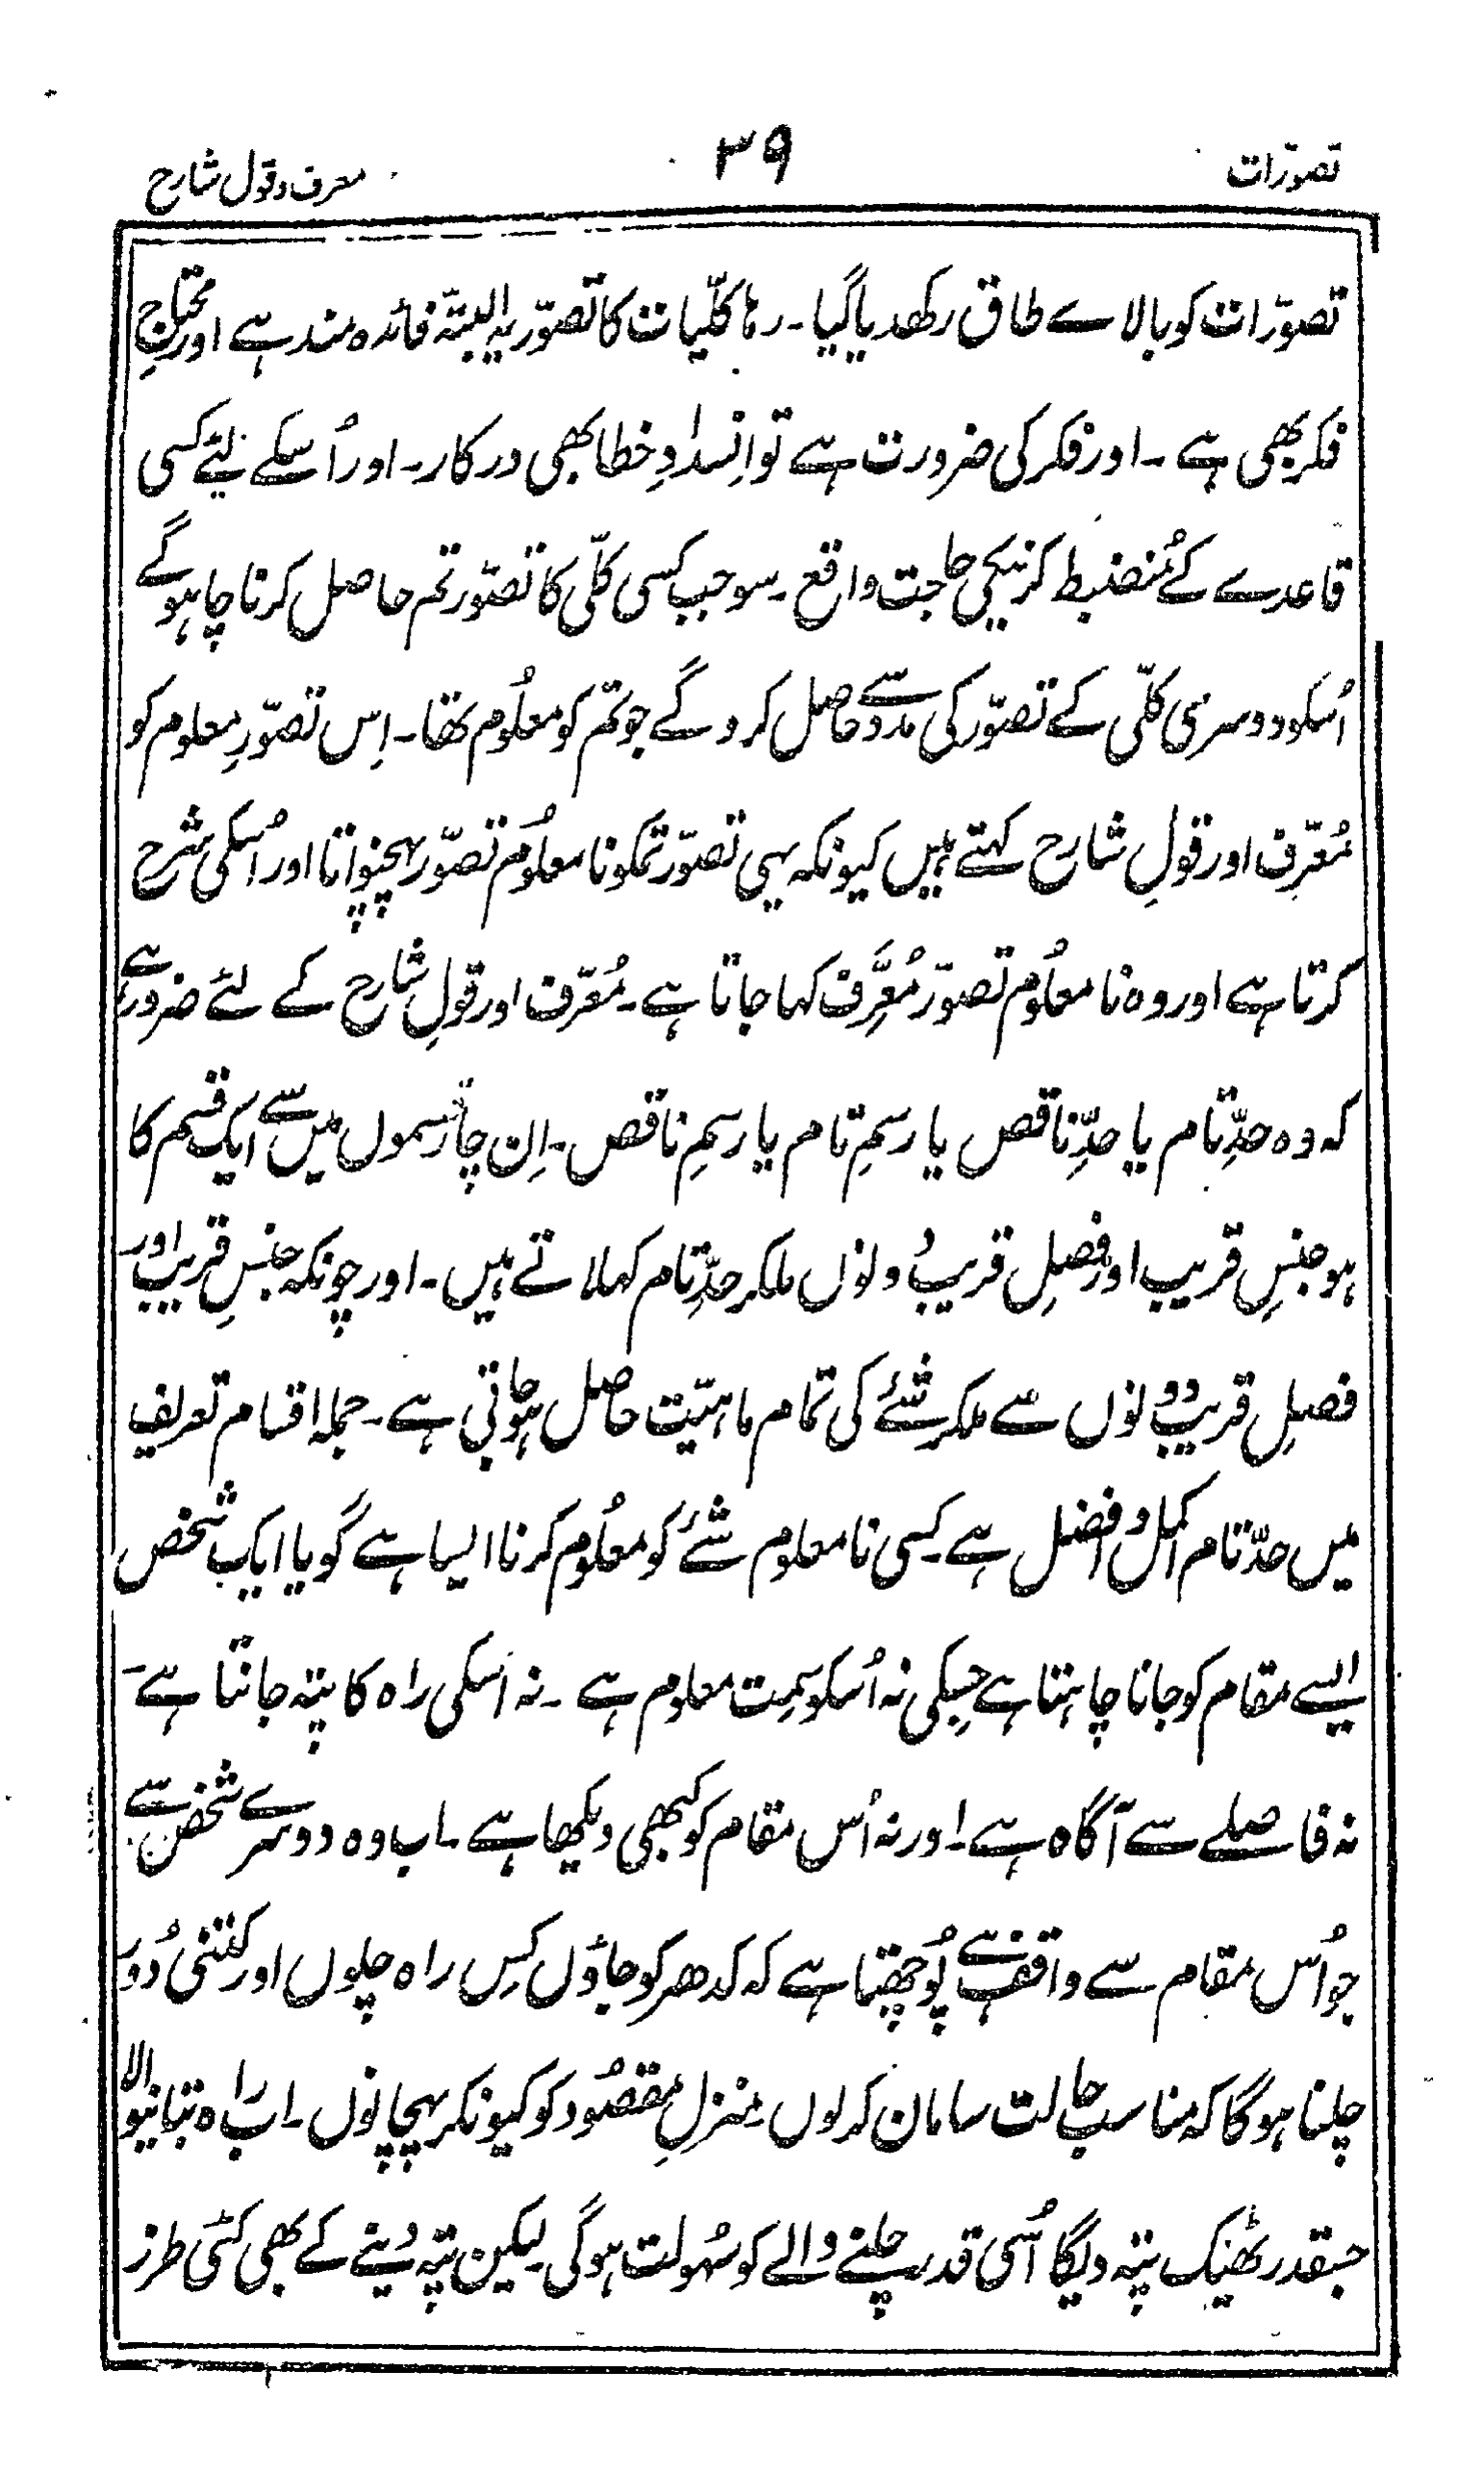 تصوّرات ۳۹ معرف و قول شارح
تصوّرات کو بالاے طاق رکھدیا گیا۔ رہا کلّیات کا تصوّر یہ البتّہ فائدہ مند ہے اور محتاجِ
فکر بھی ہے۔ اور فکر کی ضرورت ہے تو اِنسدادِ خطا بھی درکار۔ اور اُسکے لیئے کسی
قاعدے کے مُنضبط کرنیکی حاجت واقع۔ سو جب کسی کلّی کا تصوّر تم حاصل کرنا چاہو گے
اُسکو دوسری کلّی کے تصوّر کی مدد سے حاصل کرو گے جو تم کو معلُوم تھا۔ اِس تصوّرِ معلوم کو
مُعرِّف اور قولِ شارح کہتے ہیں کیونکہ یہی تصوّر تمکو نامعلُوم تصوّر پہچنواتا اور اُسکی شرح
کرتا ہے اور وہ نامعلُوم تصوّر مُعرَّف کہا جاتا ہے۔ مُعرِّف اور قولِ شارح کے لئے ضرور ہے
کہ وہ حدِّ تام یا حدِّ ناقص یا رسمِ تام یا رسمِ ناقص۔ اِن چار قسموں میں سے ایک قسم کا
ہو جنسِ قریب اور فصلِ قریب دونوں ملکر حدِّ تام کہلاتے ہیں۔ اور چونکہ جنسِ قریب اور
فصلِ قریب دونوں سے ملکر شئے کی تمام ماہیّت حاصل ہوجاتی ہے۔ جملہ اقسام تعریف
میں حدّ تام اکمل و افضل ہے۔ کسی نامعلوم شئے کو معلُوم کرنا ایسا ہے گویا ایک شخص
ایسے مقام کو جانا چاہتا ہے جسکی نہ اُسکو سمِت معلوم ہے۔ نہ اُسکی راہ کا پتہ جانتا ہے۔
نہ فاصلے سے آگاہ ہے۔ اور نہ اُس مقام کو کبھی دیکھا ہے۔ اب وہ دوسرے شخص سے
جو اُس مقام سے واقف ہے پُوچھتا ہے کہ کدھر کو جاؤں کِس راہ چلوں اور کتنی دُور
چلنا ہوگا کہ مناسب حالت سامان کرلوں منزلِ مقصُود کو کیونکر پہچانوں۔ اب راہ بتانیوالا
جسقدر ٹھیک پتہ دیگا اُسی قدر چلنے والے کو سُہولت ہوگی۔ لیکن پتہ دینے کے بھی کئی طرز